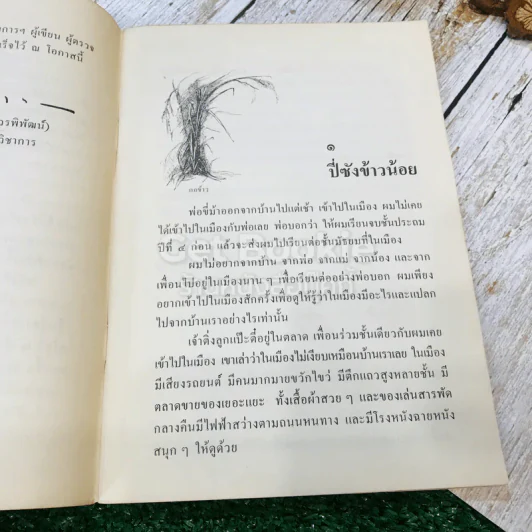 การฯ ผู้เขียน ผู้ตรวจ
ร็จไว้ ณ โอกาสนี้
วรพิพัฒน์)
วิชาการ
กอข้าว
๑
ปี่ซังข้าวน้อย
พ่อขี่ม้าออกจากบ้านไปแต่เช้า เข้าไปในเมือง ผมไม่เคย
ได้เข้าไปในเมืองกับพ่อเลย พ่อบอกว่า ให้ผมเรียนจบชั้นประถม
ปีที่ ๔ ก่อน แล้วจะส่งผมไปเรียนต่อชั้นมัธยมที่ในเมือง
ผมไม่อยากจากบ้าน จากพ่อ จากแม่ จากน้อง และจาก
เพื่อนไปอยู่ในเมืองนาน ๆ เพื่อเรียนต่ออย่างพ่อบอก ผมเพียง
อยากเข้าไปในเมืองสักครั้งเพื่อดูให้รู้ว่าในเมืองมีอะไรและแปลก
ไปจากบ้านเราอย่างไรเท่านั้น
เจ้าติ่งลูกแป๊ะตี๋อยู่ในตลาด เพื่อนร่วมชั้นเดียวกับผมเคย
เข้าไปในเมือง เขาเล่าว่าในเมืองไม่เงียบเหมือนบ้านเราเลย ในเมือง
มีเสียงรถยนต์ มีคนมากมายขวักไขว่ มีตึกแถวสูงหลายชั้น มี
ตลาดขายของเยอะแยะ ทั้งเสื้อผ้าสวย ๆ และของเล่นสารพัด
กลางคืนมีไฟฟ้าสว่างตามถนนหนทาง และมีโรงหนังฉายหนัง
สนุก ๆ ให้ดูด้วย
Get Bookie